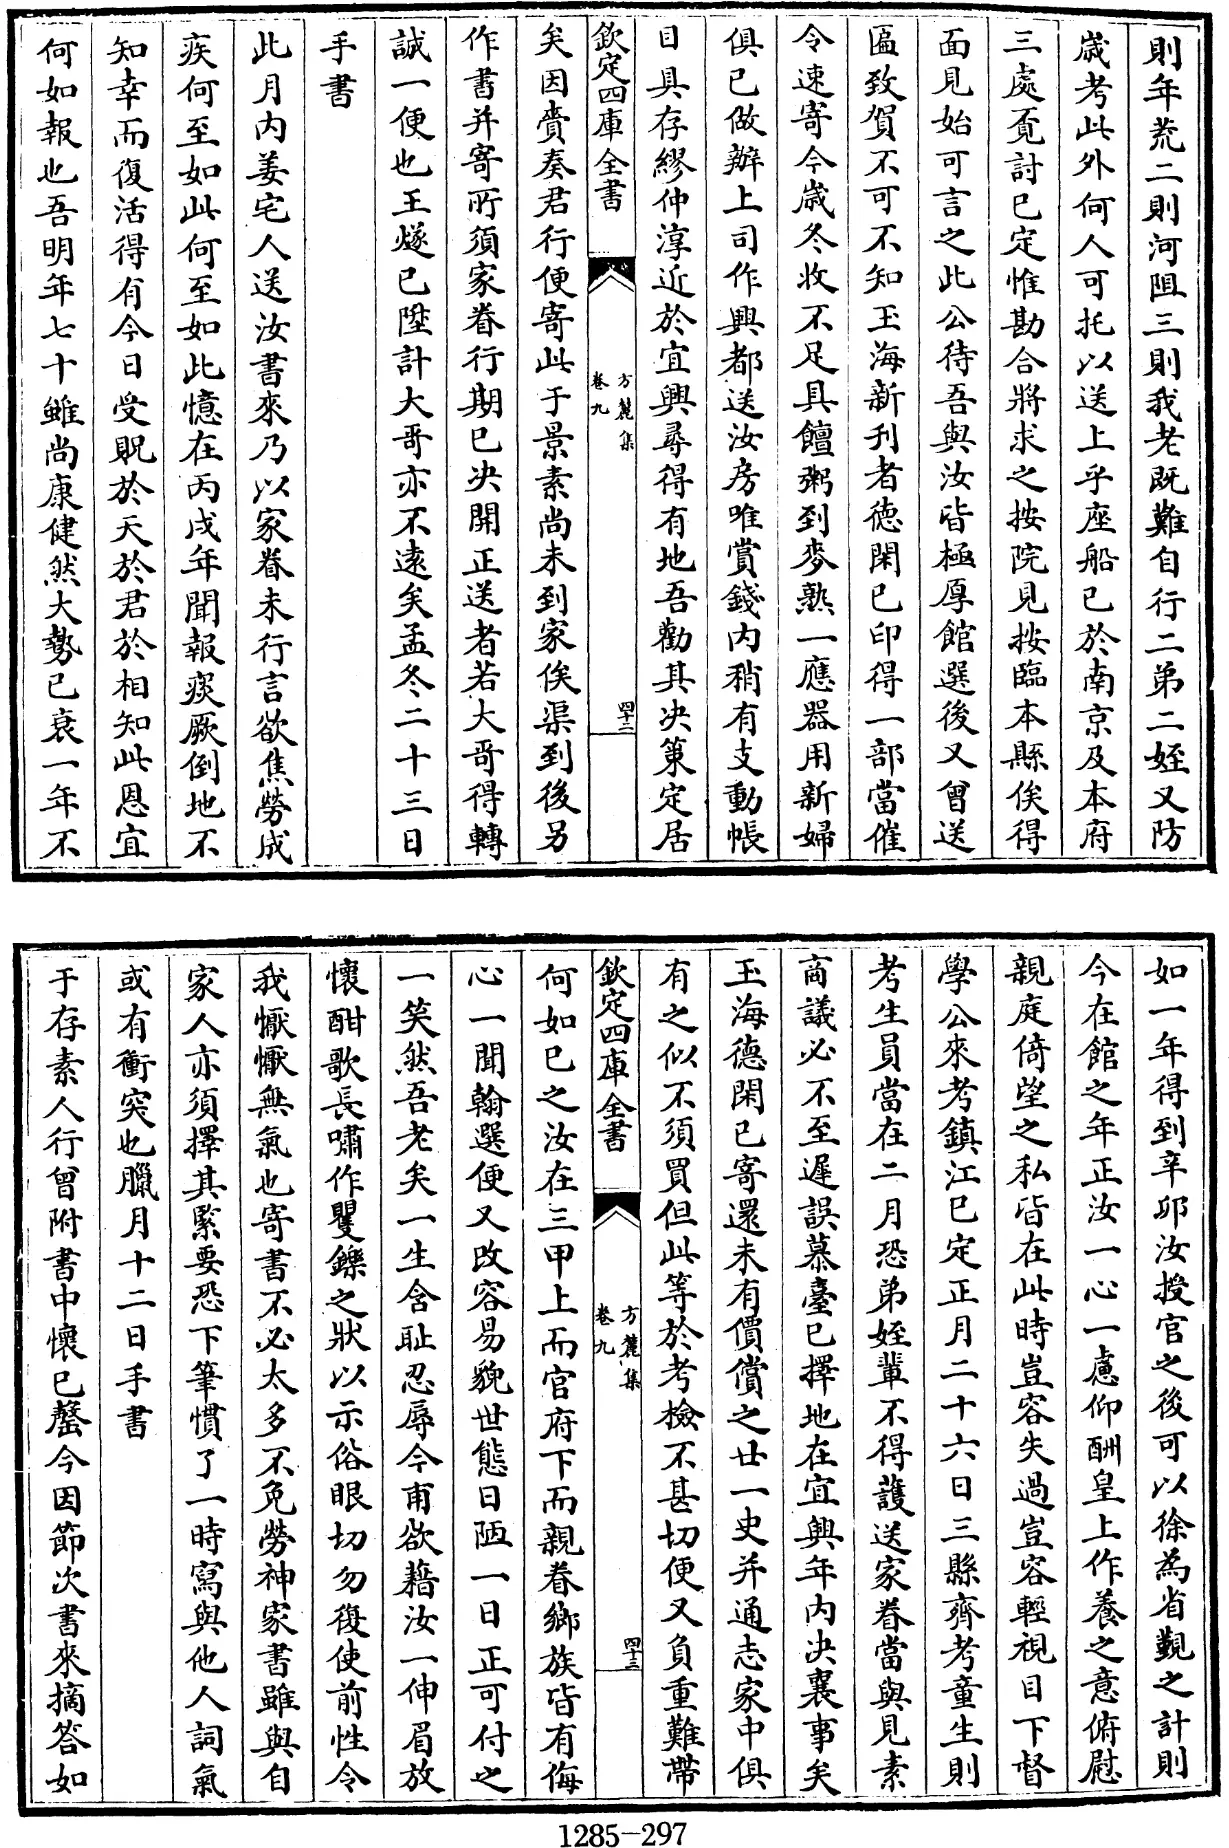 則年荒二則河阻三則我老既難自行二弟二姪又防
嵗考此外何人可托以送上乎座船已於南京及本府
三處覔討已定惟勘合將求之按院見按臨本縣俟得
面見始可言之此公待吾與汝皆極厚館選後又曾送
匾致賀不可不知玉海新刋者徳閑已印得一部當催
令速寄今嵗冬收不足具饘粥到麥熟一應器用新婦
俱已做辦上司作興都送汝房唯賞錢内稍有支動帳
目具存繆仲淳近於宜興尋得有地吾勸其决策定居
矣因賫奏君行便寄此于景素尚未到家俟渠到後另
作書并寄所須家眷行期已决開正送者若大哥得轉
誠一便也王燧已陞計大哥亦不逺矣孟冬二十三日
手書
此月内姜宅人送汝書來乃以家眷未行言欲焦勞成
疾何至如此何至如此憶在丙戌年聞報痰厥倒地不
知幸而復活得有今日受貺於天於君於相知此恩宜
何如報也吾明年七十雖尚康健然大勢已衰一年不
欽定四庫全書
方麓集
卷九
四十二
如一年得到辛卯汝授官之後可以徐為省覲之計則
今在館之年正汝一心一慮仰酬皇上作養之意俯慰
親庭倚望之私皆在此時豈容失過豈容輕視目下督
學公來考鎮江已定正月二十六日三縣齊考童生則
考生員當在二月恐弟姪輩不得護送家眷當與見素
商議必不至遲誤慕臺已擇地在宜興年内决襄事矣
玉海徳閑已寄還未有價償之廿一史并通志家中俱
有之似不須買但此等於考檢不甚切便又負重難帶
何如已之汝在三甲上而官府下而親眷鄉族皆有侮
心一聞翰選便又改容易貌世態日陋一日正可付之
一笑然吾老矣一生含恥忍辱今甫欲藉汝一伸眉放
懷酣歌長嘯作矍鑠之狀以示俗眼切勿復使前性令
我懨懨無氣也寄書不必太多不免勞神家書雖與自
家人亦須擇其緊要恐下筆慣了一時寫與他人詞氣
或有衝突也臘月十二日手書
于存素人行曾附書中懷已罄今因節次書來摘答如
欽定四庫全書
方麓集
卷九
四十三
1285-297